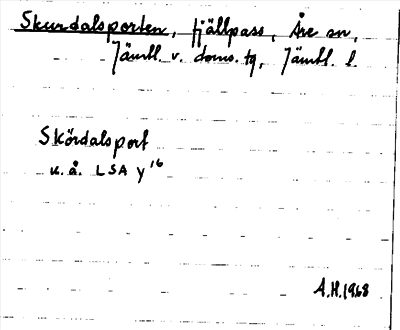 Skurdalsporten, fjällpass, Åre sn,
Jämtl. v. doms. tg, Jämtl. l.
Skördalsport
u.å. LSA Y 16
A.H. 1968